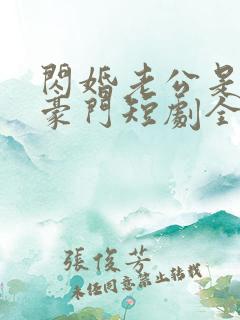 閃婚老公是
豪門短劇全
張俊芳
未經同意禁止轉載